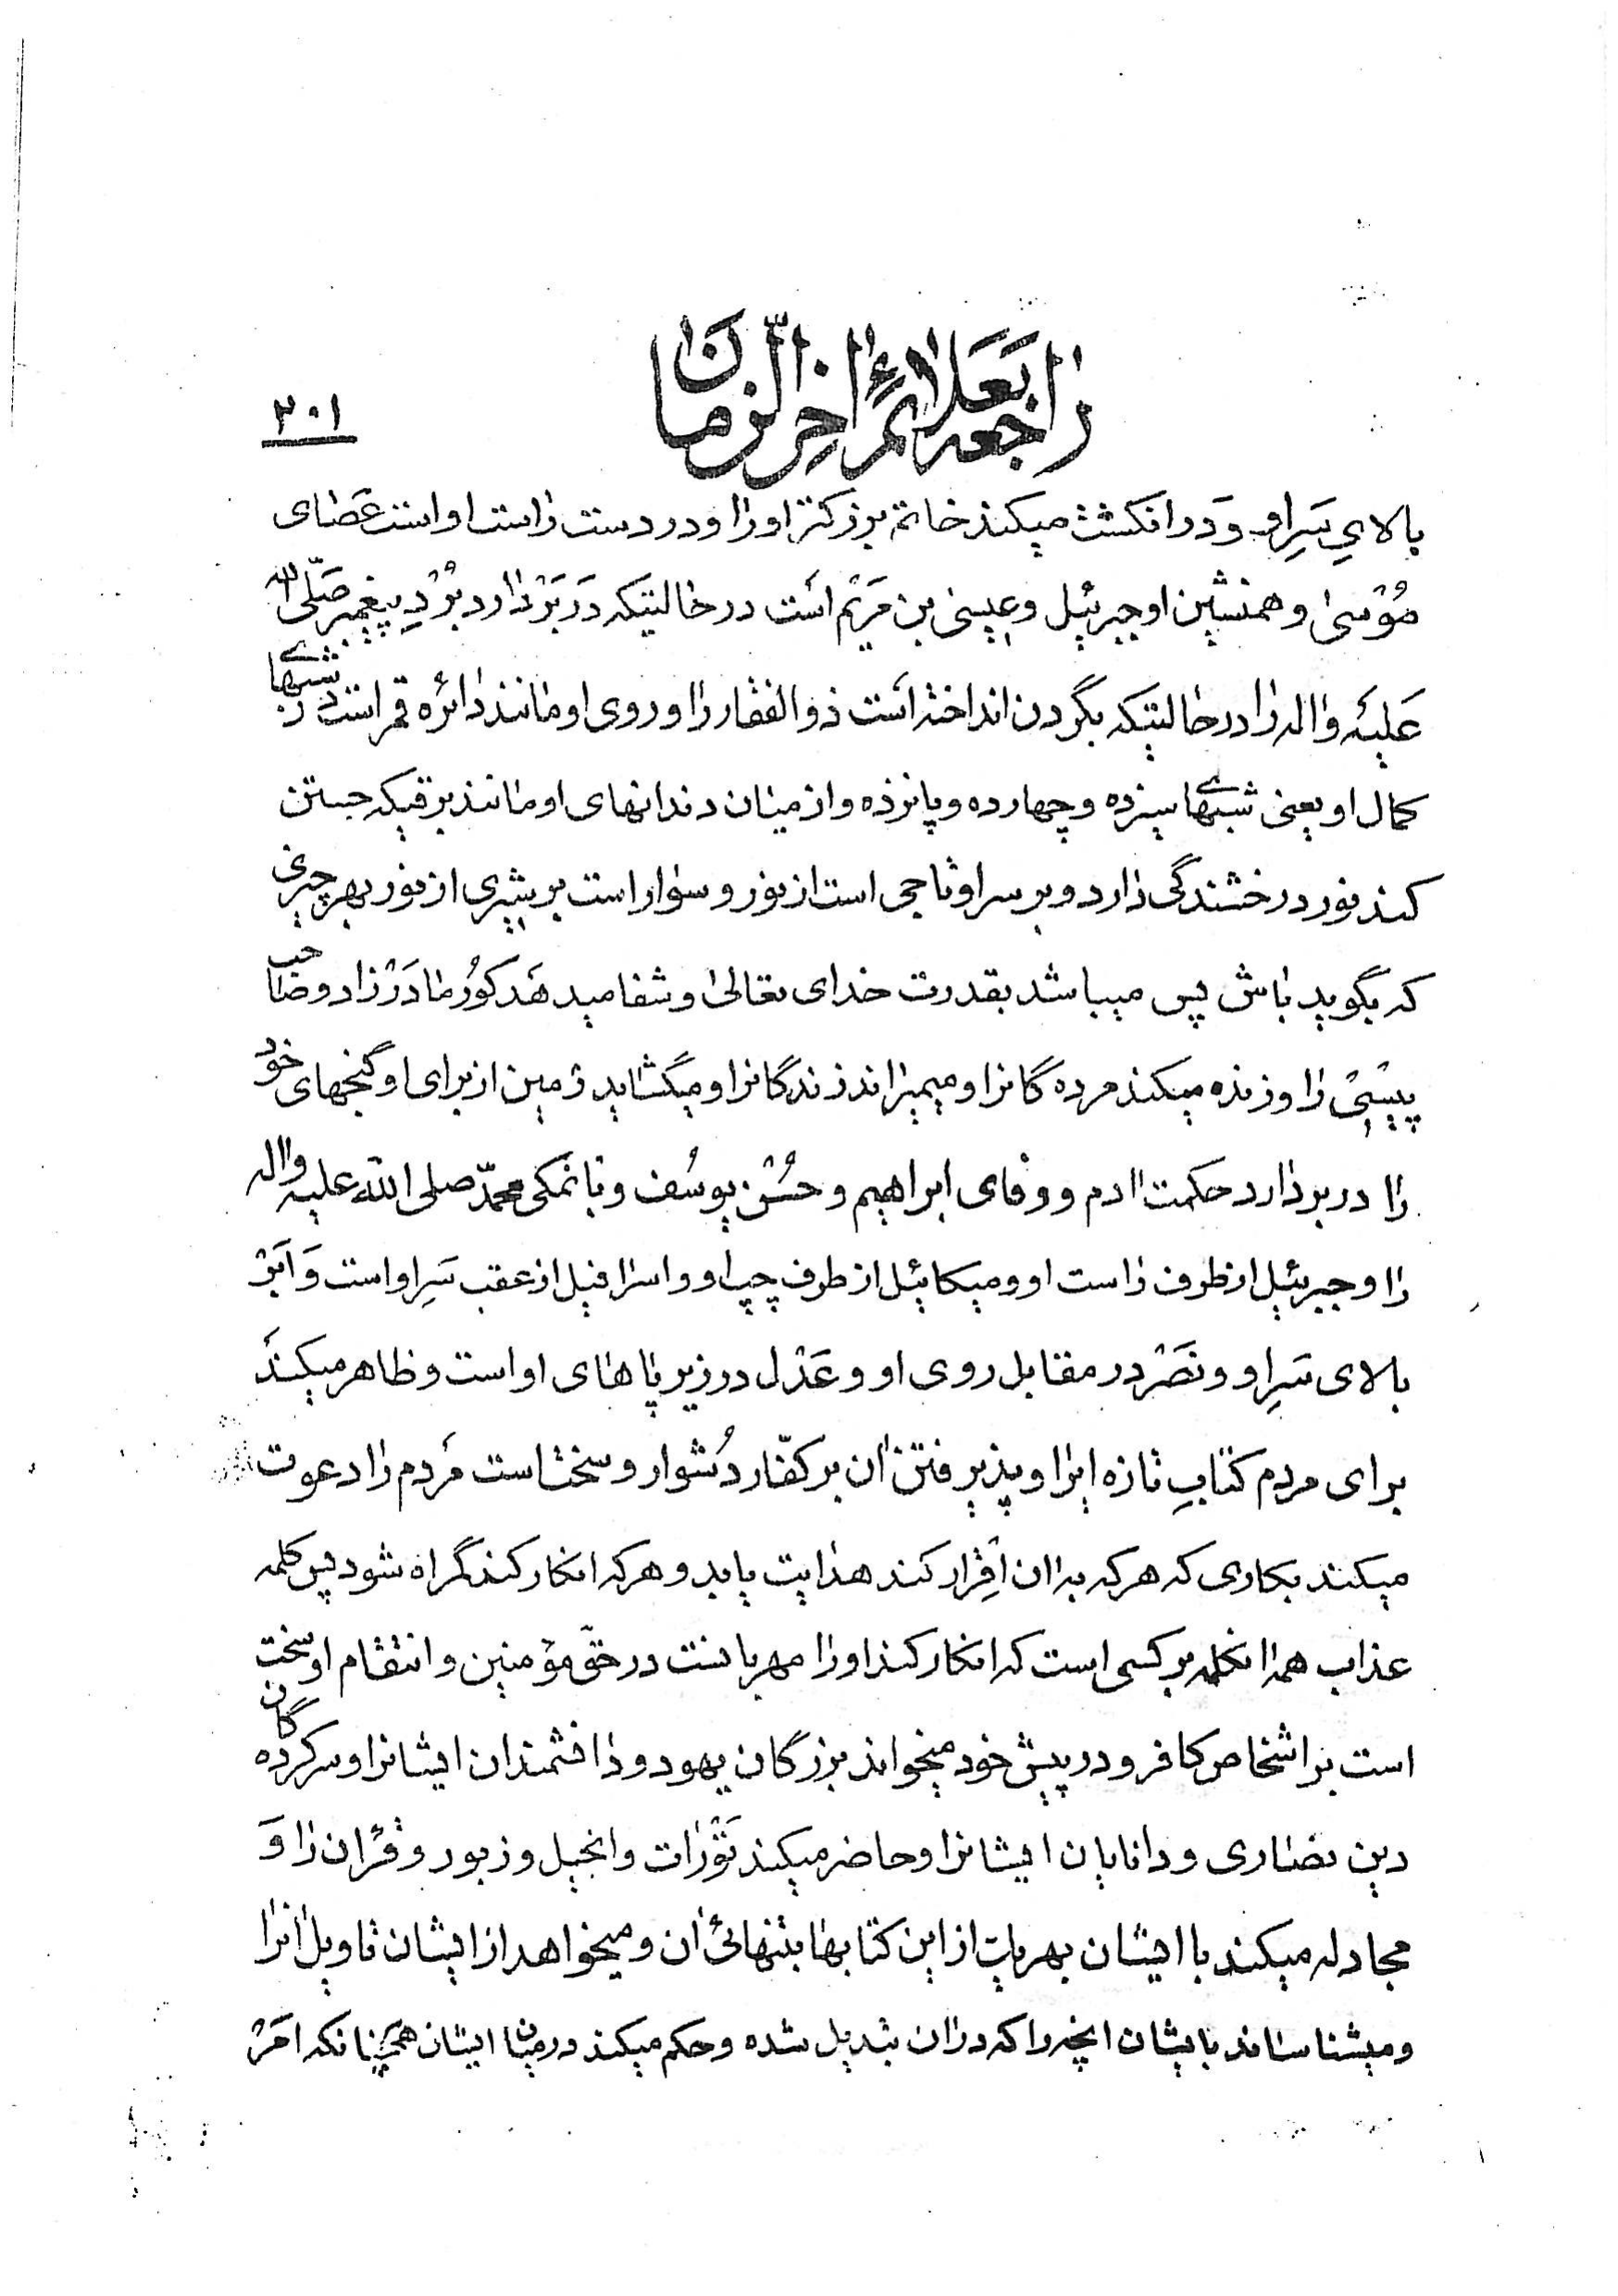 راجعه بعلائم اخر الزمان
۳۰۱
بالایِ سَرِ او وَ در انکشت میکند خاتم بزرکتر او را و در دست راست او است عَصٰای
مُوْسیٰ و همنشین او جبرئیل و عیسی بن مَرْیَم اَست در حالیتکه دَر بَرْ دارد بُرْدِ پیغمبر صَلّی الله
عَلَیْه وٰاله را در حالیتکه بگردن انداخته اَست ذوالفقار را و روی او مانند دٰائره قمر است در شبهای
کمال او یعنی شبهای سیزده و چهارده و پانزده و از میٰان دندانهای او مانند برقیکه جستن
کند نور درخشندگی دٰارد و بر سر او تاجی است از نور و سوٰار است بر شتری از نور بهر چیزی
که بگوید باش پس میباشد بقدرت خدای تعالیٰ و شفا میدهَد کوُر مٰادَرْ زاد و صٰاحب
پیٖسْیٖ را و زنده میکند مرده گانرا و میمیرٰاند زندگانرا و میگشاید زمین از برای او گنجهای خود
را در بر دٰارد حکمت اٰدم و وفای ابراهیم و حُسْن یوسُف و بانمکی محمّد صلی الله علیه واله
را و جبرئیل از طرف رٰاست او و میکائیل از طرف چپ او و اسرٰافیل از عقب سَرِ او است وَ اَبْر
بالای سَرِ او و نَصْر در مقابل روی او و عَدْل در زیر پاهٰای او است و ظاهر میکندَ
برای مردم کتابِ تازه ایرا و پذیرفتن اٰن بر کفّار دُشوار و سخت است مَردم را دعوت
میکند بکاری که هر که به اٰن اقِرٰار کند هدٰایت یابد و هر که انکار کند گمراه شود پس کلمه
عذاب همه اٰنکلمه بر کسی است که انکار کند او را مهربانست در حَقّ مؤمنین و انتقام او سخت
است بر اشخاص کافر و در پیش خود میخواند بزرگان یهود و دٰانشمندان ایشانرا و سرکرده گان
دین نصٰاری و دانایان ایشانرا و حاضر میکند تَوْرٰات و انجیل و زبور و قُرْان را وَ
مجادله میکند با ایشان بهر یک از این کتابهٰا بتنهائی اٰن و میخواهد از ایشان تاویل اٰنرا
و میشناسٰاند بایشان اٰنچه را که در اٰن تبدیل شده و حکم میکند در میٰان ایشان همچنانکه امرْ